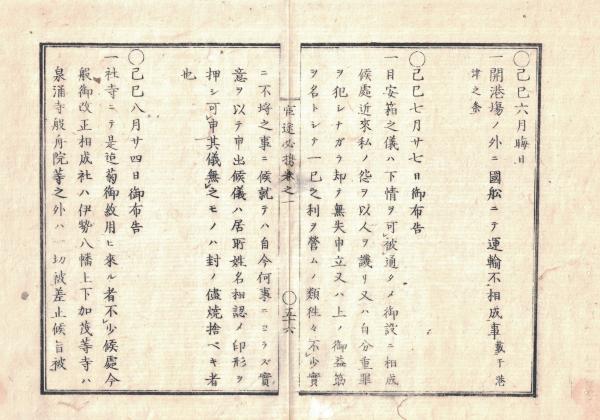 ○己巳六月晦日
一開港場ノ外ニ國舩ニテ運輸不相成事 載于港律之条
○己巳七月廿七日御布告
一目安箱之儀ハ下情ヲ可被通タメ御設ニ相成
候處近來私ノ怨ヲ以人ヲ讒リ又ハ自分重罪
ヲ犯シナガラ却テ無失申立又ハ上ノ御益筋
ヲ名トシテ一己之利ヲ營ムノ類徃々不少實
官途必携巻之一
○五十六
ニ不埓之事ニ候就テハ自今何事ニヨラズ實
意ヲ以テ申出候儀ハ居所姓名相認メ印形ヲ
押シ可申其儀無之モノハ封ノ儘燒捨ベキ者
也
○己巳八月廿四日御布告
一社寺ニテ是迠菊御紋用ヒ來ル者不少候處今
般御改正相成社ハ伊勢八幡上下加茂等寺ハ
泉涌寺般舟院等之外ハ一切被差止候旨被